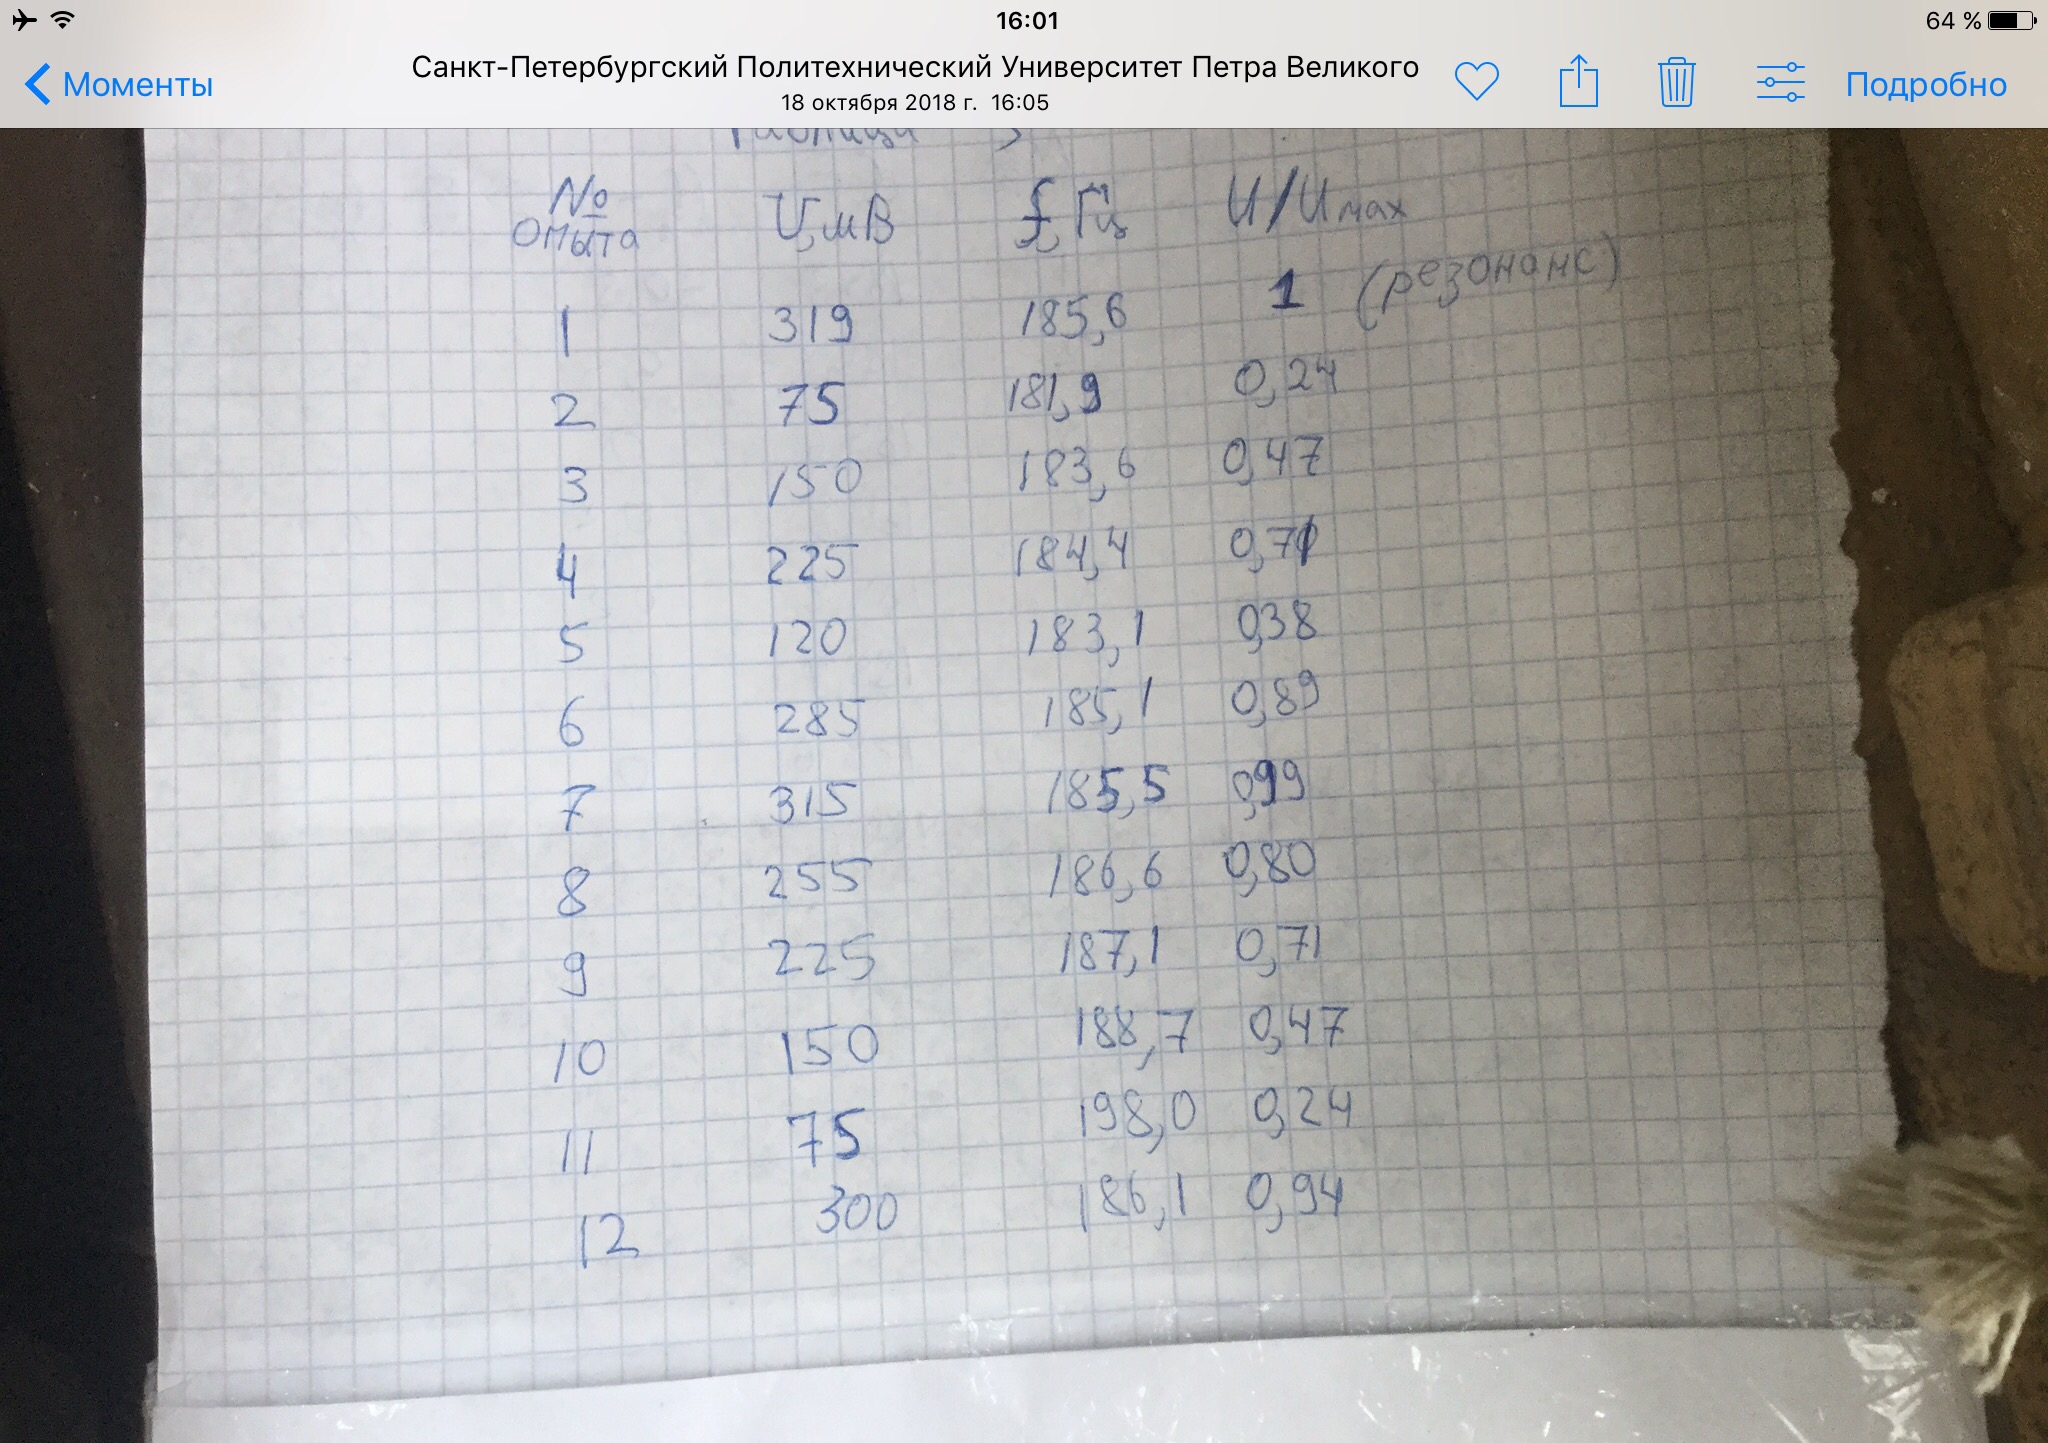 16:01
64 %
Моменты
Санкт-Петербургский Политехнический Университет Петра Великого
18 октября 2018 г. 16:05
Подробно
Таблица 3
№ опыта U,мВ f,Гц U/Umax
1 319 185,6 1 (резонанс)
2 75 181,9 0,24
3 150 183,6 0,47
4 225 184,4 0,71
5 120 183,1 0,38
6 285 185,1 0,89
7 315 185,5 0,99
8 255 186,6 0,80
9 225 187,1 0,71
10 150 188,7 0,47
11 75 198,0 0,24
12 300 186,1 0,94